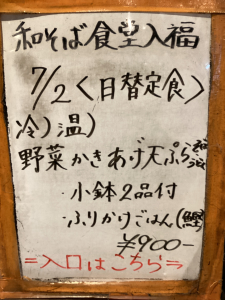 和そば食堂入福
7/2〈日替定食〉
冷)温)
野菜かきあげ天ぷらそば
・小鉢2品付
・ふりかけごはん(鰹)
¥900-
⇒入口はこちら⇒